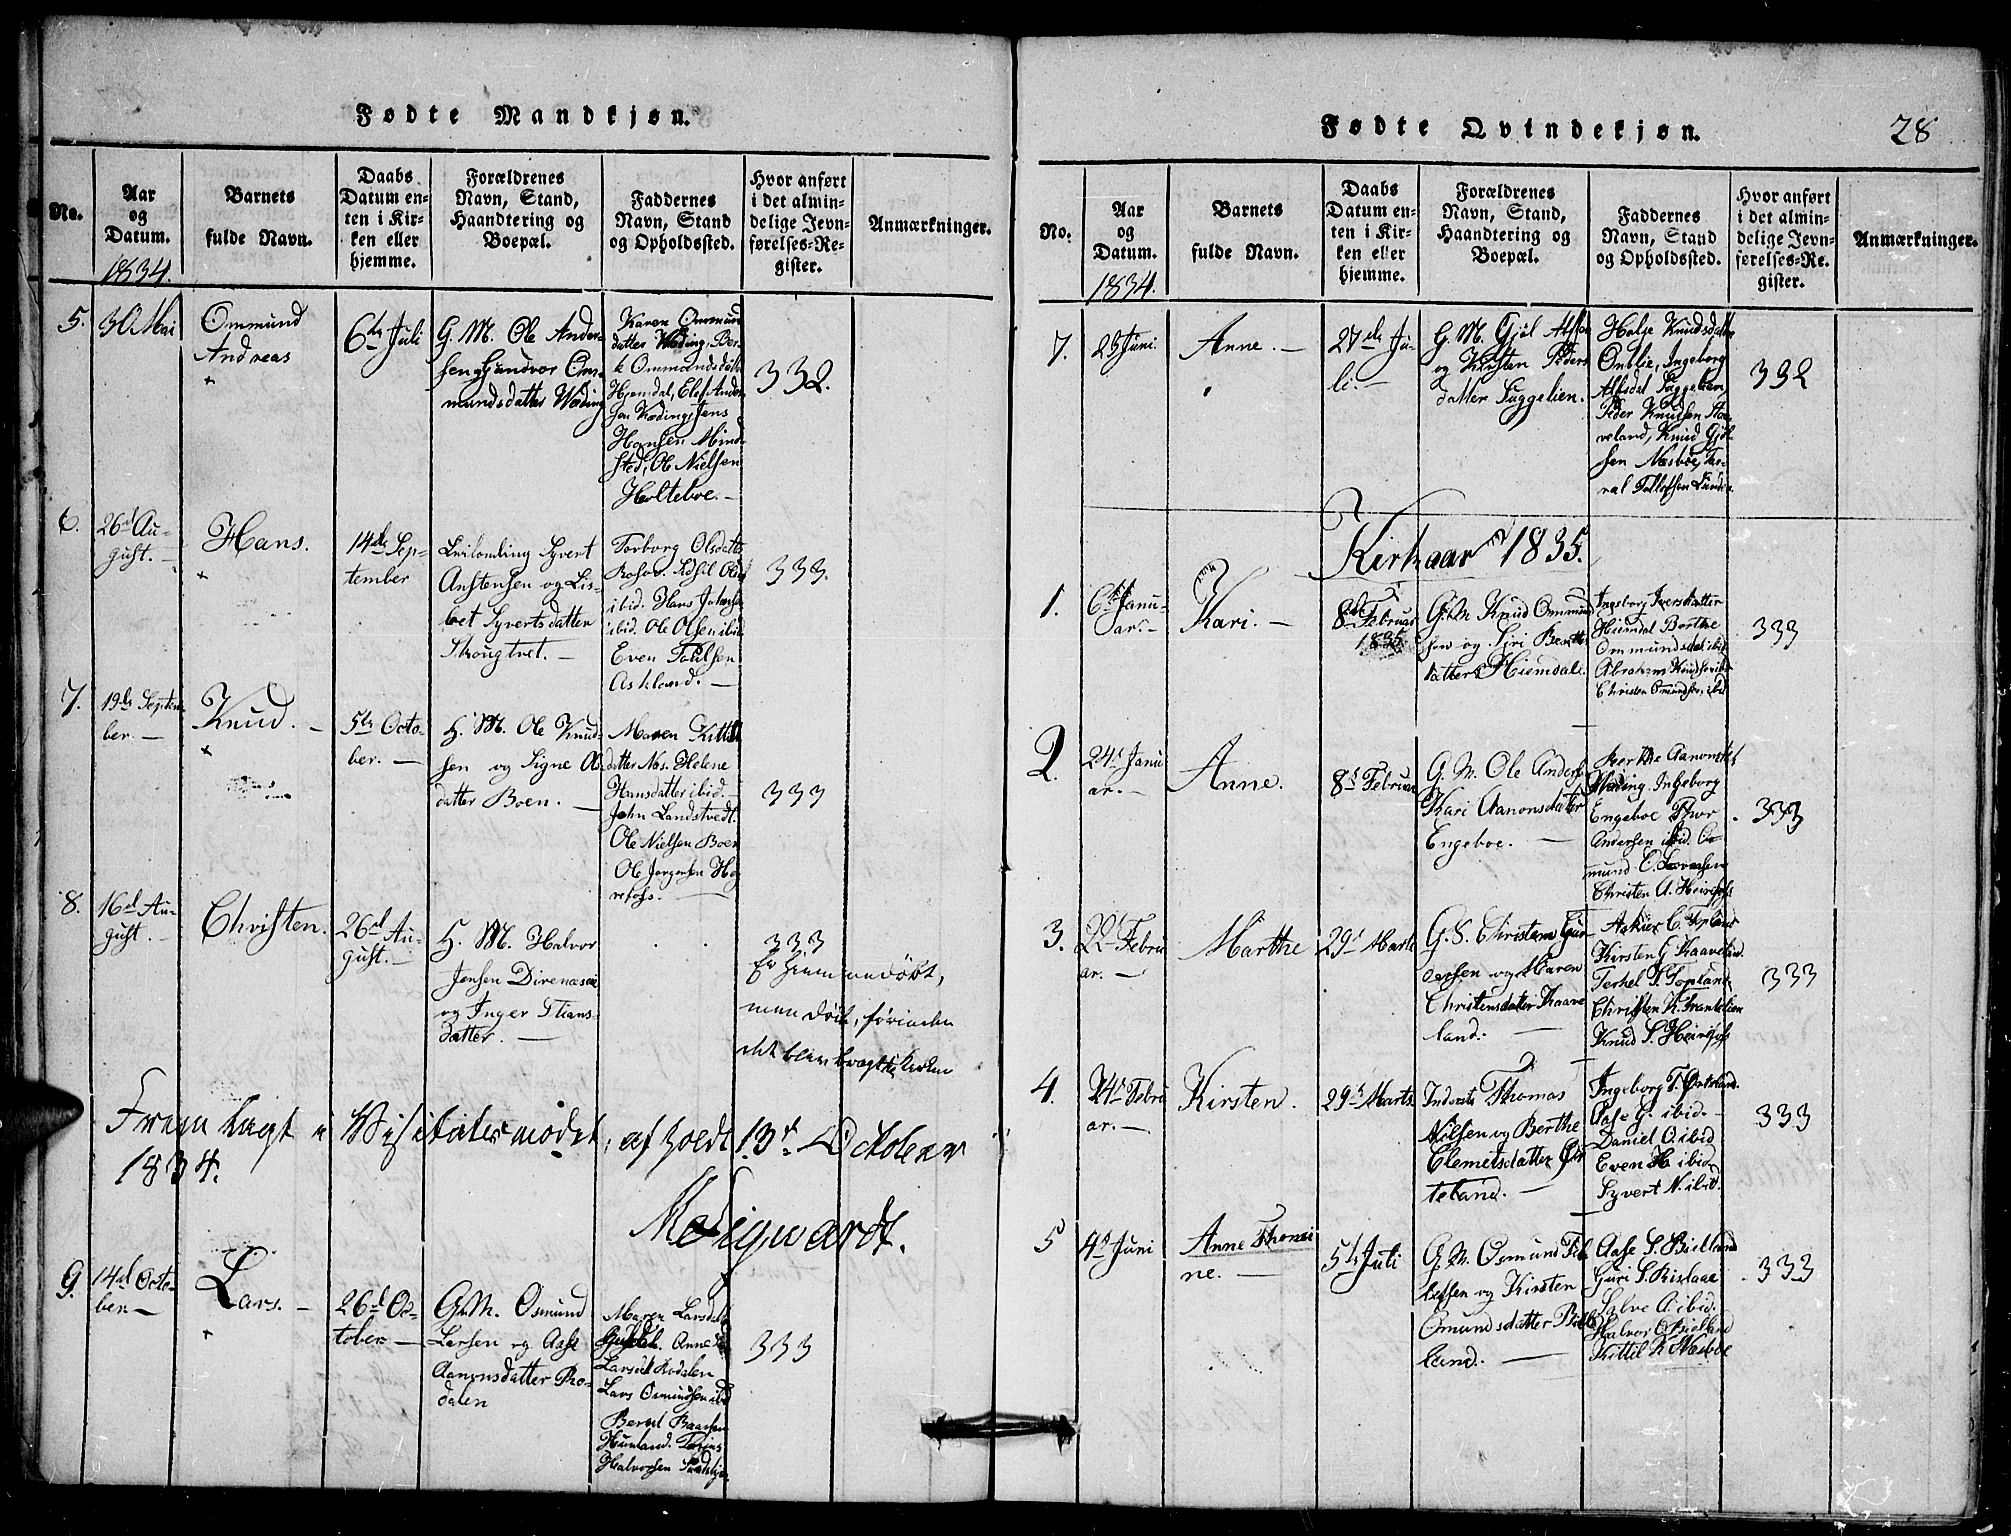 Fødte Mandkjøn.
No.
Aar
og
Datum.
1834.
Barnets
fulde Navn.
Daabs
Datum en-
ten i Kir-
ken eller
hjemme.
Forældrenes
Navn, Stand,
Haandtering og
Boepæl.
Faddernes
Navn, Stand
og Opholdssted.
Hvor anført
i det almin-
delige Jevn-
førelses-Re-
gister.
Anmærkninger.
5.
30 Mai
Ommund
Andreas
6te Juli
G. M. Ole Ander-
sen Gundvor Om-
mundsdatter Wæding
Karen Ommund
datter Wæding, Ber-
Ommundsdatter
Hjemdal, Olef Ander
sen Wæding, Jens
Hansen Mind-
sted, Ole Nielsen
Holteboe. —
332.
6.
26d Au-
gust. —
Hans.
14de Sep-
tember
Leilending Syvert
Anstensen og Lis-
bet Syvertsdatter
Skougtvet. —
Torborg Olsdatter
Rosov. Olsd
ibid. Hans Johnsen
ibid. Ole Olsen ibid
Even Poulsen
Askland. —
333.
7.
19de Septem-
ber. —
Knud. —
5te Octo-
ber. —
G. M. Ole Knud-
sen og Signe Ols-
datter Boen. —
Maren Kittils
datter Næs. Helene
Hansdatter ibid. —
John Landstvedt.
Ole Nielsen Boen
Ole Jørgensen Hø
refoss. —
333
8.
16d Au-
gust. —
Christen.
26d Au-
gust. —
G. M. Halvor
Jensen Direnæsen
og Inger Stians-
datter. —
333
Er hjemmedøbt,
men døde, førinden
det blev bragt til Kirken
Fremlagt i Visitatsmødet, afholdt 13d October
1834.
Medigwardt.
9.
14d Octo-
ber —
Lars. —
26d Oc-
tober —
G. M. Osmund
Larsen og Aase
Aanonsdatter Ro-
dalen
Maren Larsdat
Anne
Larsdt Rodalen
Lars Osmundsen ibd
Bernt Baarsen
Hunland. Tarjus
Halvorsen
333
Fødte Qvindekjøn.
28
No.
Aar
og
Datum.
1834.
Barnets
fulde Navn.
Daabs
Datum en-
ten i Kir-
ken eller
hjemme.
Forældrenes
Navn, Stand,
Haandtering og
Boepæl.
Faddernes
Navn, Stand
og Opholdssted.
Hvor anført
i det almin-
delige Jevn-
førelses-Re-
gister.
Anmærkninger.
7.
25 Juni
Anne. —
27de Ju-
li. —
G. M. Gjøl Alfsen
og Kirsten Peders
datter Suggelien.
Halge Knudsdatter
Omblie, Ingeborg
Alfsdat Suggelien,
Peder Knudsen Stor-
veland, Knud Gjøl-
sen Næsboe,
Tellefsen
332
Kirkaar 1835.
1.
6te Janu-
ar. —
Kari. —
8de Februar
1835
G. M. Knud Ommund
sen og Siri Berthe
datter Hiemdal.
Ingeborg Iversdatter
Hiemdal Berthe
Ommundsdat. ibid
Abraham Knudsen ibid
Christen Omundsen, ibid
333
2.
24d Janu
ar. —
Anne.
8d Februar
G. M. Ole Anders
Kari Aanonsdatter
Engeboe. —
Berthe Aanonsdat
Wæding. Ingeborg
Engeboe Thor
Andersen ibid. Os-
mund O.
Christen A. Heirefoss
333
3.
22d Febru
ar. —
Marthe
29d Marts
G. S. Christen Gur-
ersen og Maren
Christensdatter Kaave
land. —
C. Topland
Kirsten G Kaaveland.
Terkel S. Topland.
Christen K. Trantelien
Knud S. Heirefoss
333
4.
24d Febru
ar. —
Kirsten.
29d Marts
Inderste Thomas
Nilsen og Berthe
Clemetsdatter Øs
teland. —
Ingeborg T. Østeland.
Aase G. ibid. —
Daniel O. ibid
Even H ibid.
Syvert N. ibid.
333
5
4d Juni
Anne Thomi
ne. —
5te Juli
G. M. Osmund Tel
lefsen og Kirsten
Omundsdatter Biel
land. —
Aase S. Bielland
Guri S. Rislaae
Salve A. ibid.
Halvor O Bielland
Kittil K Næsboe
333